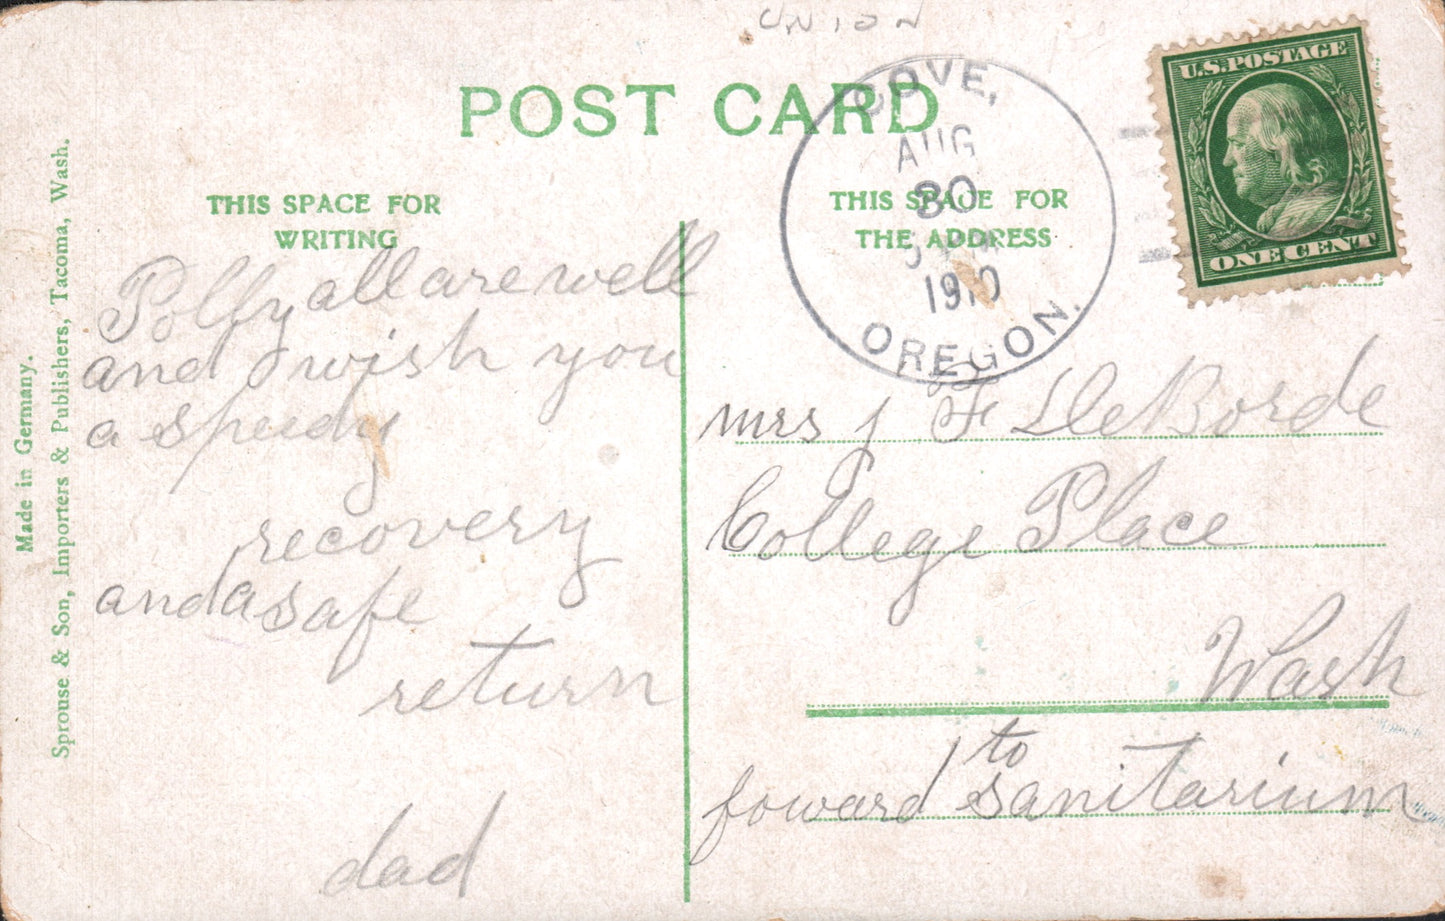 UNION
POST CARD
COVE,
AUG
30
1910
OREGON.
U.S. POSTAGE
ONE CENT
THIS SPACE FOR
WRITING
THIS SPACE FOR
THE ADDRESS
Polly all are well
and wish you
a speedy
recovery
and a safe
return
dad
mrs J F DeBorde
College Place
Wash
foward to Sanitarium
Made in Germany.
Sprouse & Son, Importers & Publishers, Tacoma, Wash.